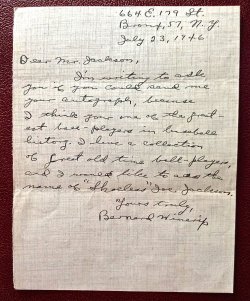 664 E. 179 St.
Bronx, 57, N.Y.
July 23, 1946
Dear Mr. Jackson,
I'm writing to ask
you if you could send me
your autograph, because
I think your one of the great-
est base-players in baseball
history. I have a collection
of great old time ball-players,
and I would like to add the
name of "Shoeless" Joe Jackson.
Yours truly,
Bernard